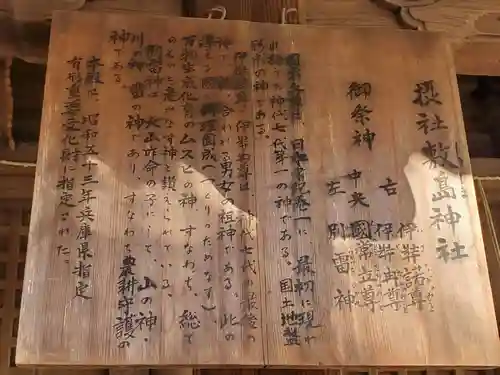 摂社 敷島神社
御祭神
右 伊弉諾尊
伊弉冉尊
中央 國常立尊
左 別雷神
國常立尊は、日本書紀巻一に、最初に現れ
出た神代七代第一の神である。国土地盤
の神である。
伊弉諾尊、伊弉冉尊は、神代七代の最後の
神で
男女の祖神である。此の
万物生成化育のムスビの神、すなわち、総て
のものを産みなす神と讃えられている。
別雷神は、火山咋命の子にして、山の神、
川の神、雷の神であり、すなわち農耕守護の
神である。
本殿は、昭和五十三年兵庫県指定
有形重要文化財に指定された。